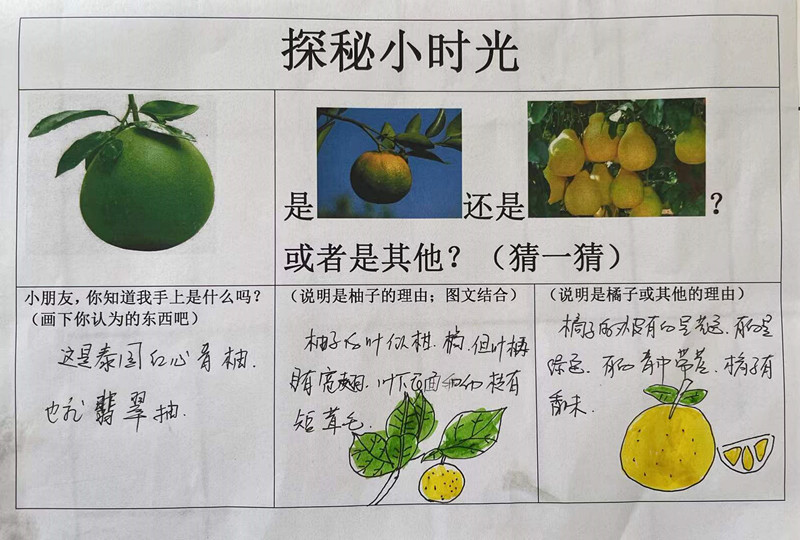 探秘小时光
是 还是 ?
或者是其他?(猜一猜)
小朋友,你知道我手上是什么吗?
(画下你认为的东西吧)
这是泰国红心青柚.
也称翡翠柚.
(说明是柚子的理由;图文结合)
柚子的叶似柑.橘.但叶柄
具有宽翅.叶下面和幼枝有
短茸毛.
(说明是橘子或其他的理由)
橘子的皮有的是
有的青中带黄.橘子有
香味.